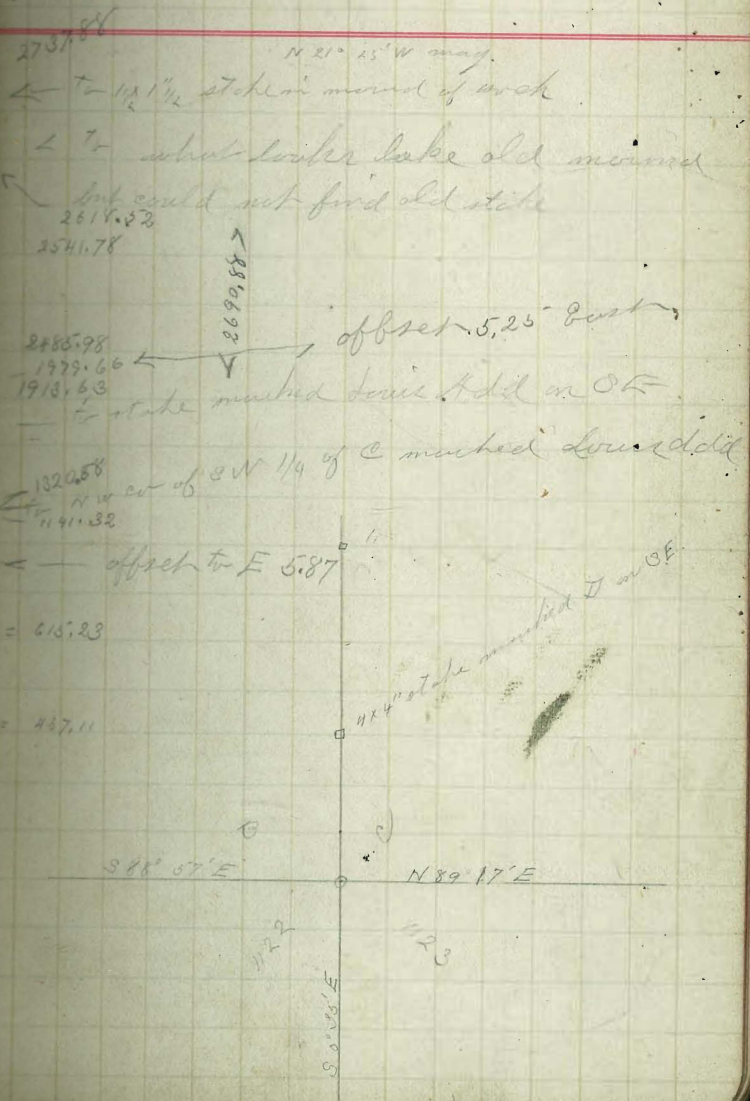 2737.88
N 21° 25' W mag.
← To 1½ x 1"½ stake in mound of rock
< To what looks like old mound
but could not find old stake
2618.52
2541.78
2690.88
offset 5.25 East
2485.98
1979.66
1913.63
to stake marked Add on SE
1320.58
N W cor of S W 1/4 of C marked
1141.32
← offset to E 5.87
= 615.23
4x4" stake marked D on SE
= 457.11
S 88° 57' E
N 89 17' E
22
23
S 0° 35' E